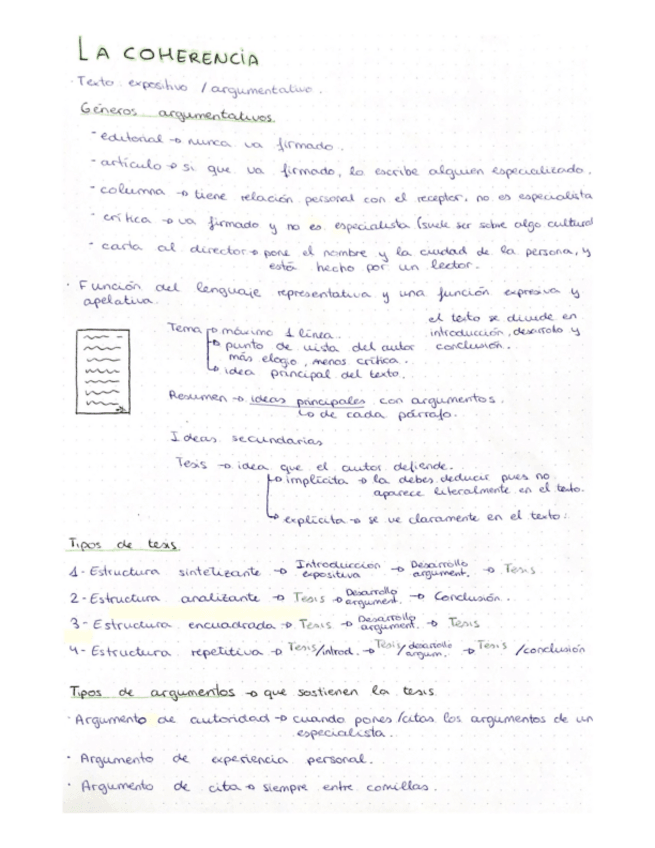 LA COHERENCIA
· Texto: expositivo / argumentativo.
Géneros argumentativos
- editorial → nunca va firmado.
- artículo → si que va firmado, lo escribe alguien especializado.
- columna → tiene relación personal con el receptor, no es especialista
- crítica → va firmado y no es especialista (suele ser sobre algo cultural
- carta al director → pone el nombre y la ciudad de la persona, y
está hecho por un lector.
· Función del lenguaje representativa y una función expresiva y
apelativa.
el texto se divide en
introducción, desarrollo y
conclusión.
Tema → máximo 1 línea.
→ punto de vista del autor
más elogio, menos crítica.
→ idea principal del texto.
Resumen → ideas principales con argumentos.
↳ de cada párrafo.
Ideas secundarias
Tesis → idea que el autor defiende.
→ implícita → la debes deducir pues no
aparece literalmente en el texto.
→ explícita → se ve claramente en el texto.
Tipos de tesis
1- Estructura sintetizante → Introducción expositiva → Desarrollo argument. → Tesis
2- Estructura analizante → Tesis → Desarrollo argument. → Conclusión.
3- Estructura encuadrada → Tesis → Desarrollo argument. → Tesis
4- Estructura repetitiva → Tesis/introd. → Tesis/desarrollo argum. → Tesis /conclusión
Tipos de argumentos → que sostienen la tesis
· Argumento de autoridad → cuando pones/citas los argumentos de un
especialista.
· Argumento de experiencia personal.
· Argumento de cita → siempre entre comillas.